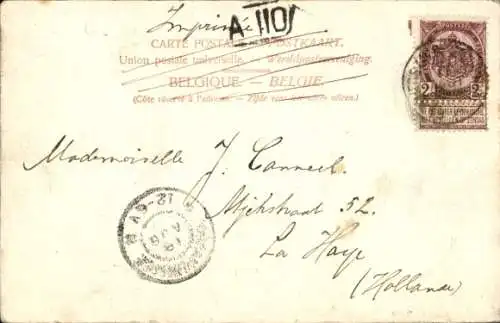 Imprimé
A 110
CARTE POSTALE — POSTKAART.
Union postale universelle. — Wereldpostvereeniging.
BELGIQUE — BELGIE.
(Côté réservé à l'adresse. — Zijde voor het adres alleen.)
2 2
Mademoiselle J. Canneel
52.
La Haye
(Hollande)
12-6V